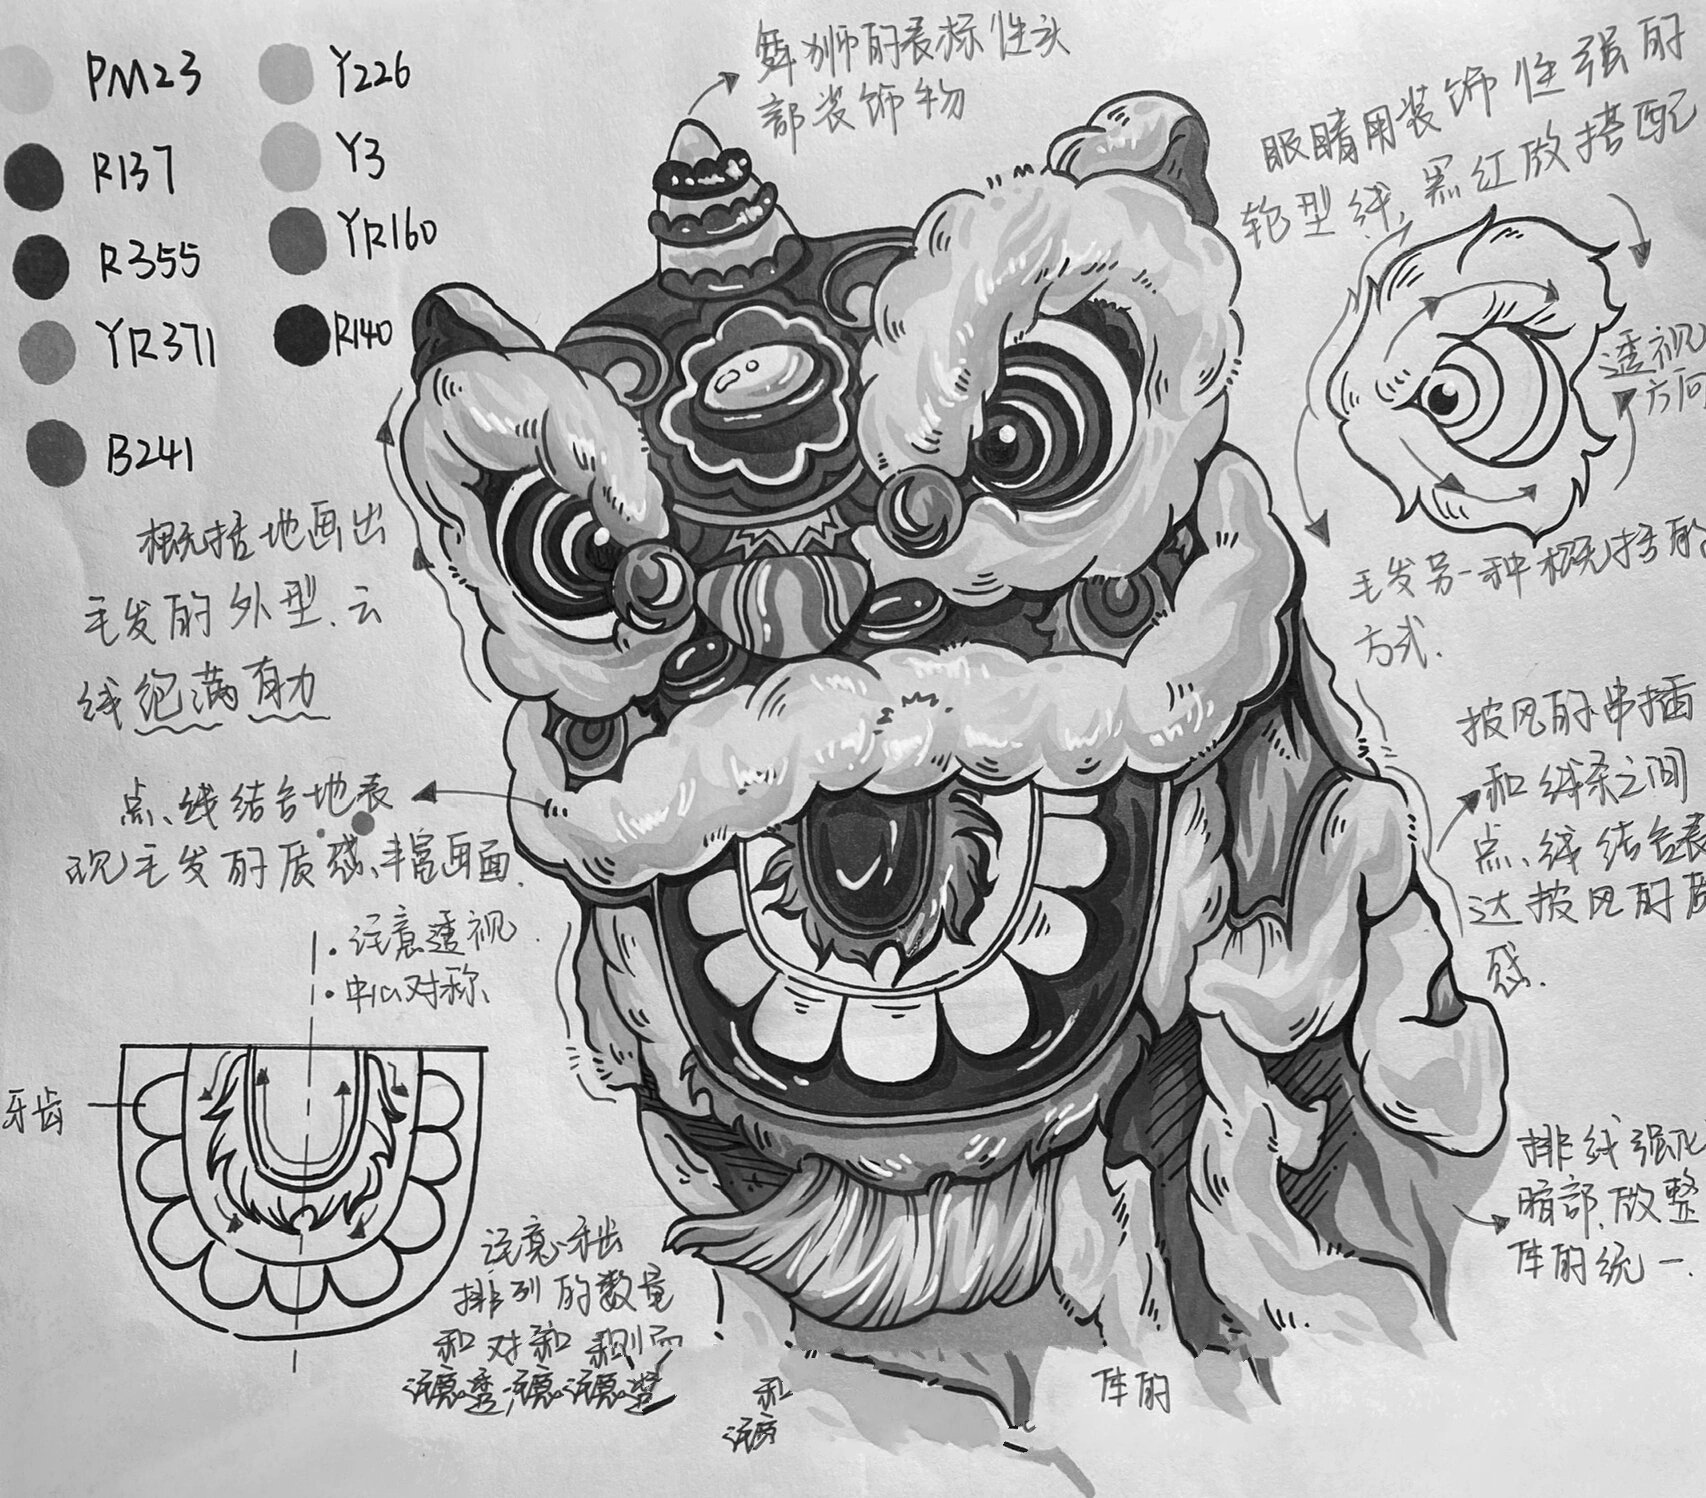 PM23
R137
R355
YR371
B241
Y226
Y3
YR160
R140
舞狮的表标性头
部装饰物
眼睛用装饰性强的
轮型线,黑红放搭配
透视
方向
毛发另一种概括的
方式.
概括地画出
毛发的外型.云
线饱满有力
点、线结合地表
现毛发的质感、丰富画面.
·注意透视.
·中心对称.
牙齿
注意牙齿
排列的数量
和对和
披风的串插
和线条之间
点、线结合表
达披风的质
感.
排线强化
暗部.做整
体的统一.
和
体的